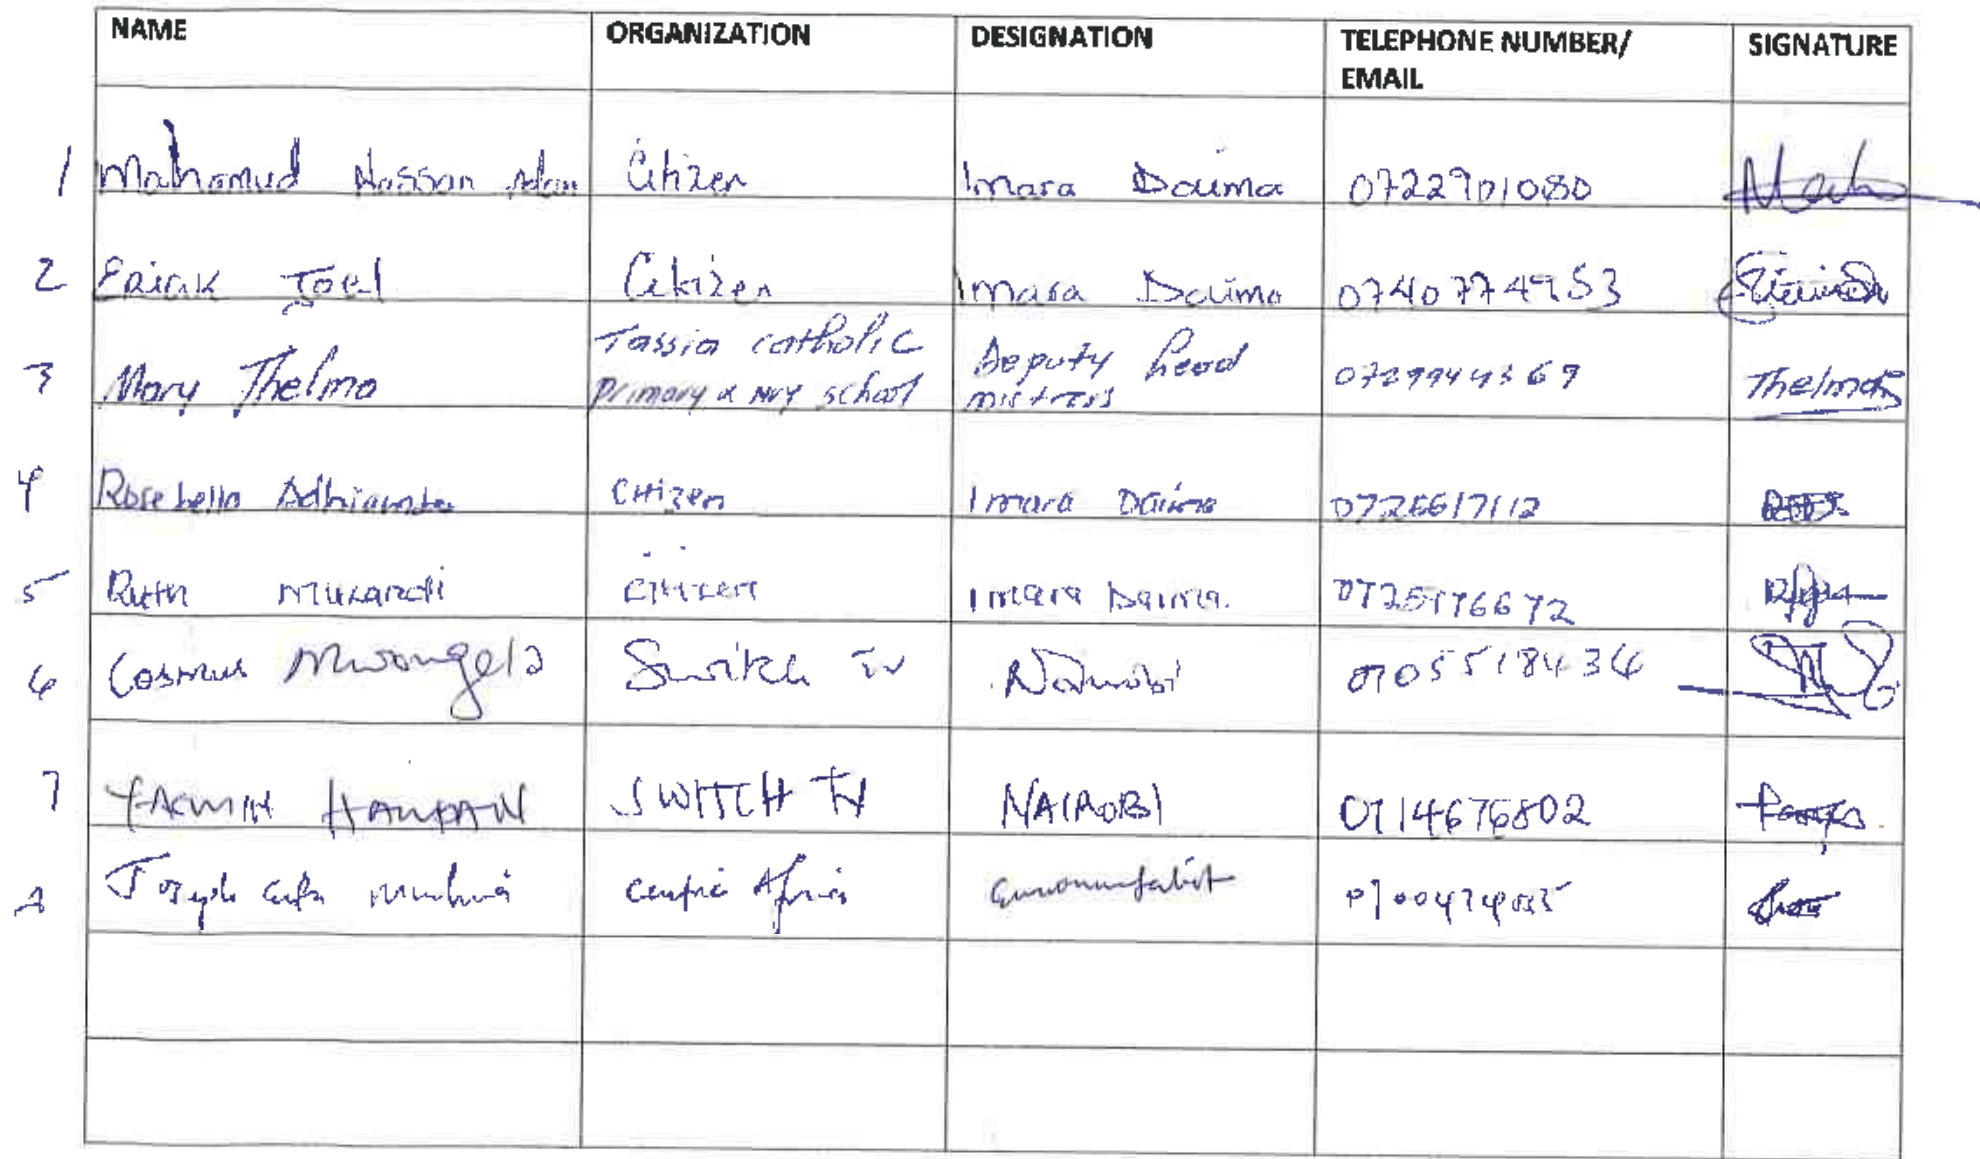 NAME ORGANIZATION DESIGNATION TELEPHONE NUMBER/ EMAIL SIGNATURE
1 Mahamud Hassan Adan Citizen Imara Daima 0722901080
2 Erick Joel Citizen Imara Daima
3 Mary Thelma Tassia catholic Primary & Nry school Deputy head mistress 0729944369 Thelma
4 Rosebella Adhiambo Citizen Imara Daima 0726617112
5 Ruth Citizen Imara Daima
6 Cosmus Mwongela Switch TV Nairobi 0705518434
7 SWITCH TV NAIROBI 0714676802
8 Joseph